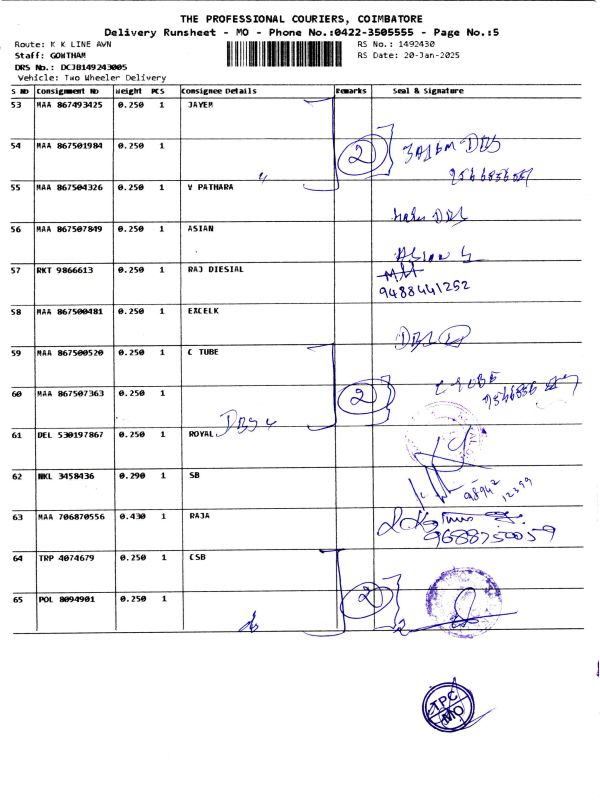 THE PROFESSIONAL COURIERS, COIMBATORE
Delivery Runsheet - MO - Phone No.:0422-3505555 - Page No.:5
Route: K K LINE AVN
RS No.: 1492430
Staff: GOWTHAM
RS Date: 20-Jan-2025
DRS No.: DCJB149243005
Vehicle: Two Wheeler Delivery
S NO Consignment No Weight PCS Consignee Details Remarks Seal & Signature
53 MAA 867493425 0.250 1 JAYEM
54 MAA 867501984 0.250 1
2
55 MAA 867504326 0.250 1 V PATHARA
56 MAA 867507849 0.250 1 ASIAN
57 RKT 9866613 0.250 1 RAJ DIESIAL
9488441252
58 MAA 867500481 0.250 1 EXCELK
59 MAA 867500520 0.250 1 C TUBE
60 MAA 867507363 0.250 1
2
61 DEL 530197867 0.250 1 ROYAL
62 NKL 3458436 0.290 1 SB
63 MAA 706870556 0.430 1 RAJA
9688750059
64 TRP 4074679 0.250 1 CSB
65 POL 8094901 0.250 1
2
TPC
MO